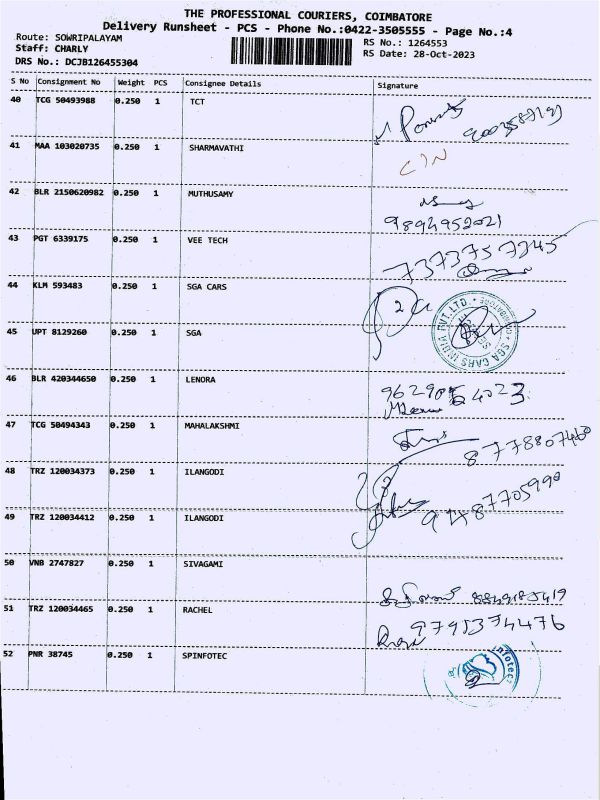 THE PROFESSIONAL COURIERS, COIMBATORE
Delivery Runsheet - PCS - Phone No.:0422-3505555 - Page No.:4
Route: SOWRIPALAYAM
RS No.: 1264553
Staff: CHARLY
RS Date: 28-Oct-2023
DRS No.: DCJB126455304
S No Consignment No Weight PCS Consignee Details Signature
40 TCG 50493988 0.250 1 TCT
41 MAA 103020735 0.250 1 SHARMAVATHI
42 BLR 2150620982 0.250 1 MUTHUSAMY
9894952021
43 PGT 6339175 0.250 1 VEE TECH
7373757245
44 KLM 593483 0.250 1 SGA CARS
SGA CARS INDIA PVT.LTD.
45 UPT 8129260 0.250 1 SGA
46 BLR 420344650 0.250 1 LENORA
47 TCG 50494343 0.250 1 MAHALAKSHMI
8778807460
48 TRZ 120034373 0.250 1 ILANGODI
9487705990
49 TRZ 120034412 0.250 1 ILANGODI
50 VNB 2747827 0.250 1 SIVAGAMI
51 TRZ 120034465 0.250 1 RACHEL
9791374476
52 PNR 38745 0.250 1 SPINFOTEC